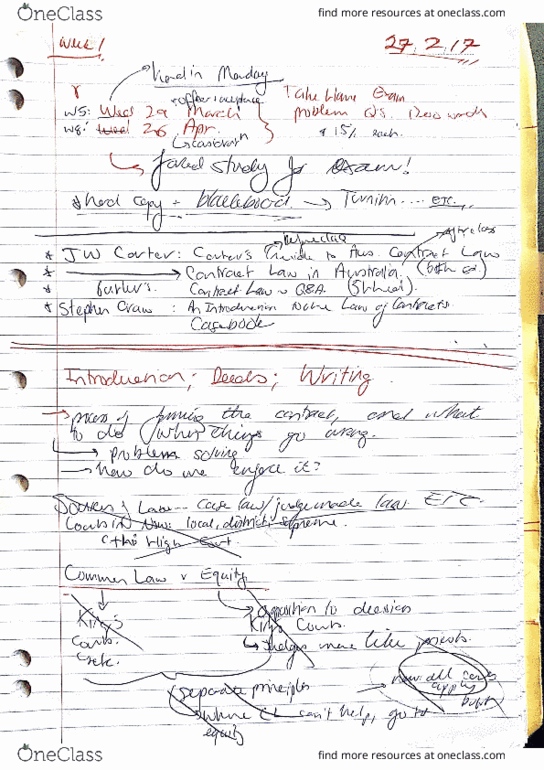 OneClass
find more resources at oneclass.com
Week 1
27.2.17
Hand in Monday
offer + acceptance
Take Home Exam
W5: Wed 29 March
problem Qs. 1200 words
W8: Wed 26 Apr.
* 15% each.
study for exam!
* hard copy + blackboard → Turnitin .... etc.
before class
after class
* JW Carter: Carter's Guide to Aus. Contract Law
* Contract Law in Australia. (6th ed.)
* Contract Law Q&A.
* Stephen Graw : An Introduction to the Law of Contracts
Casebook
Introduction; Deeds; Writing
→ process of forming the contract, and what
to do when things go wrong.
→ problem solving
→ how do we enforce it?
Sources of Law -- case law/judge made law. ETC.
Courts in NSW: local, district, supreme.
the High Court.
Common Law v Equity
King's
Courts.
etc.
opposition to decision
King's Courts.
↳ judges more like priests.
separate principles
now all courts
apply
both
→ where CL can't help, go to
equity
OneClass
find more resources at oneclass.com